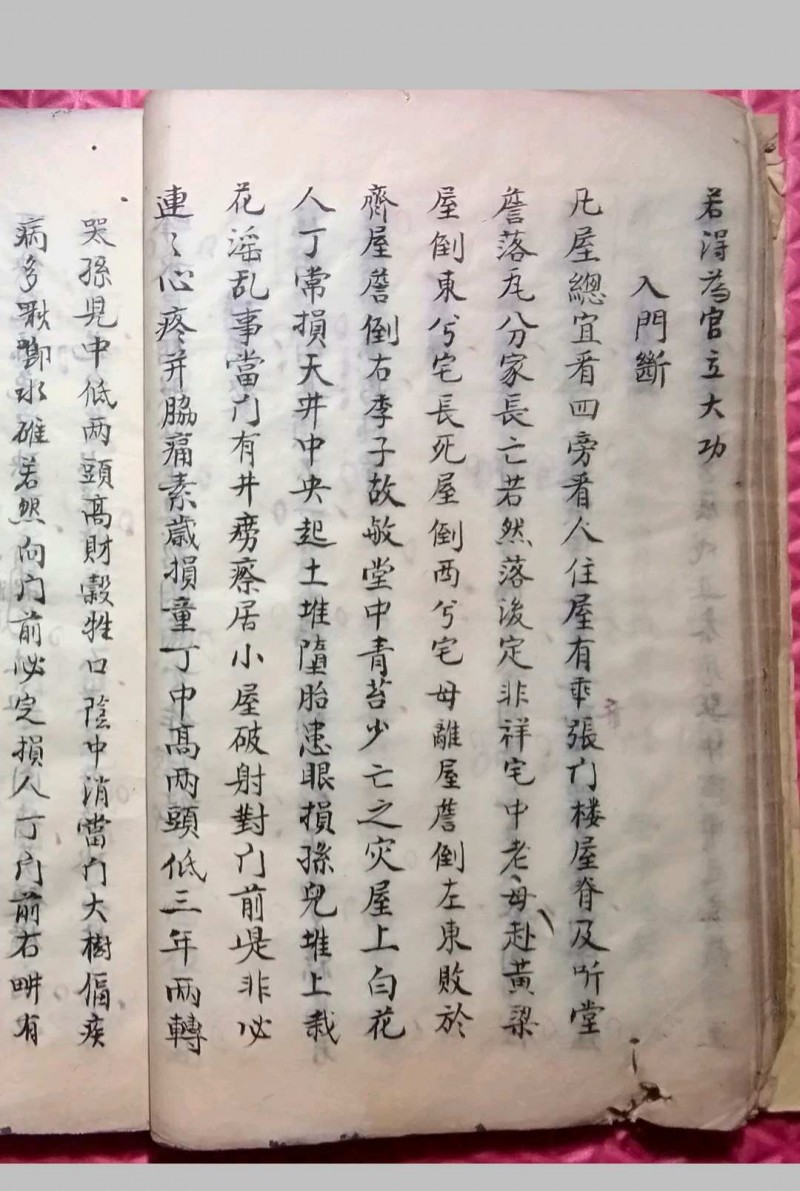 若得為官立大功
入門斷
凡屋總宜看四旁看人住屋有乖張门楼屋脊及听堂
簷落瓦分家長亡若然落後定非祥宅中老母赴黃梁
屋倒東兮宅長死屋倒西兮宅母離屋簷倒左東敗於
齊屋簷倒右李子故敏堂中青苔少亡之灾屋上白花
人丁常損天井中央起土堆墮胎患眼損孫兒堆上栽
花滛乱事當门有井癆瘵居小屋破射對门前是非必
連〻心疼并脇痛素歲損童丁中高两頭低三年两轉
哭孫児中低两頭高財穀牲口陰中消當门大樹傴疾
病多耿鄧水碓若然向门前必定損人丁门前右畊有